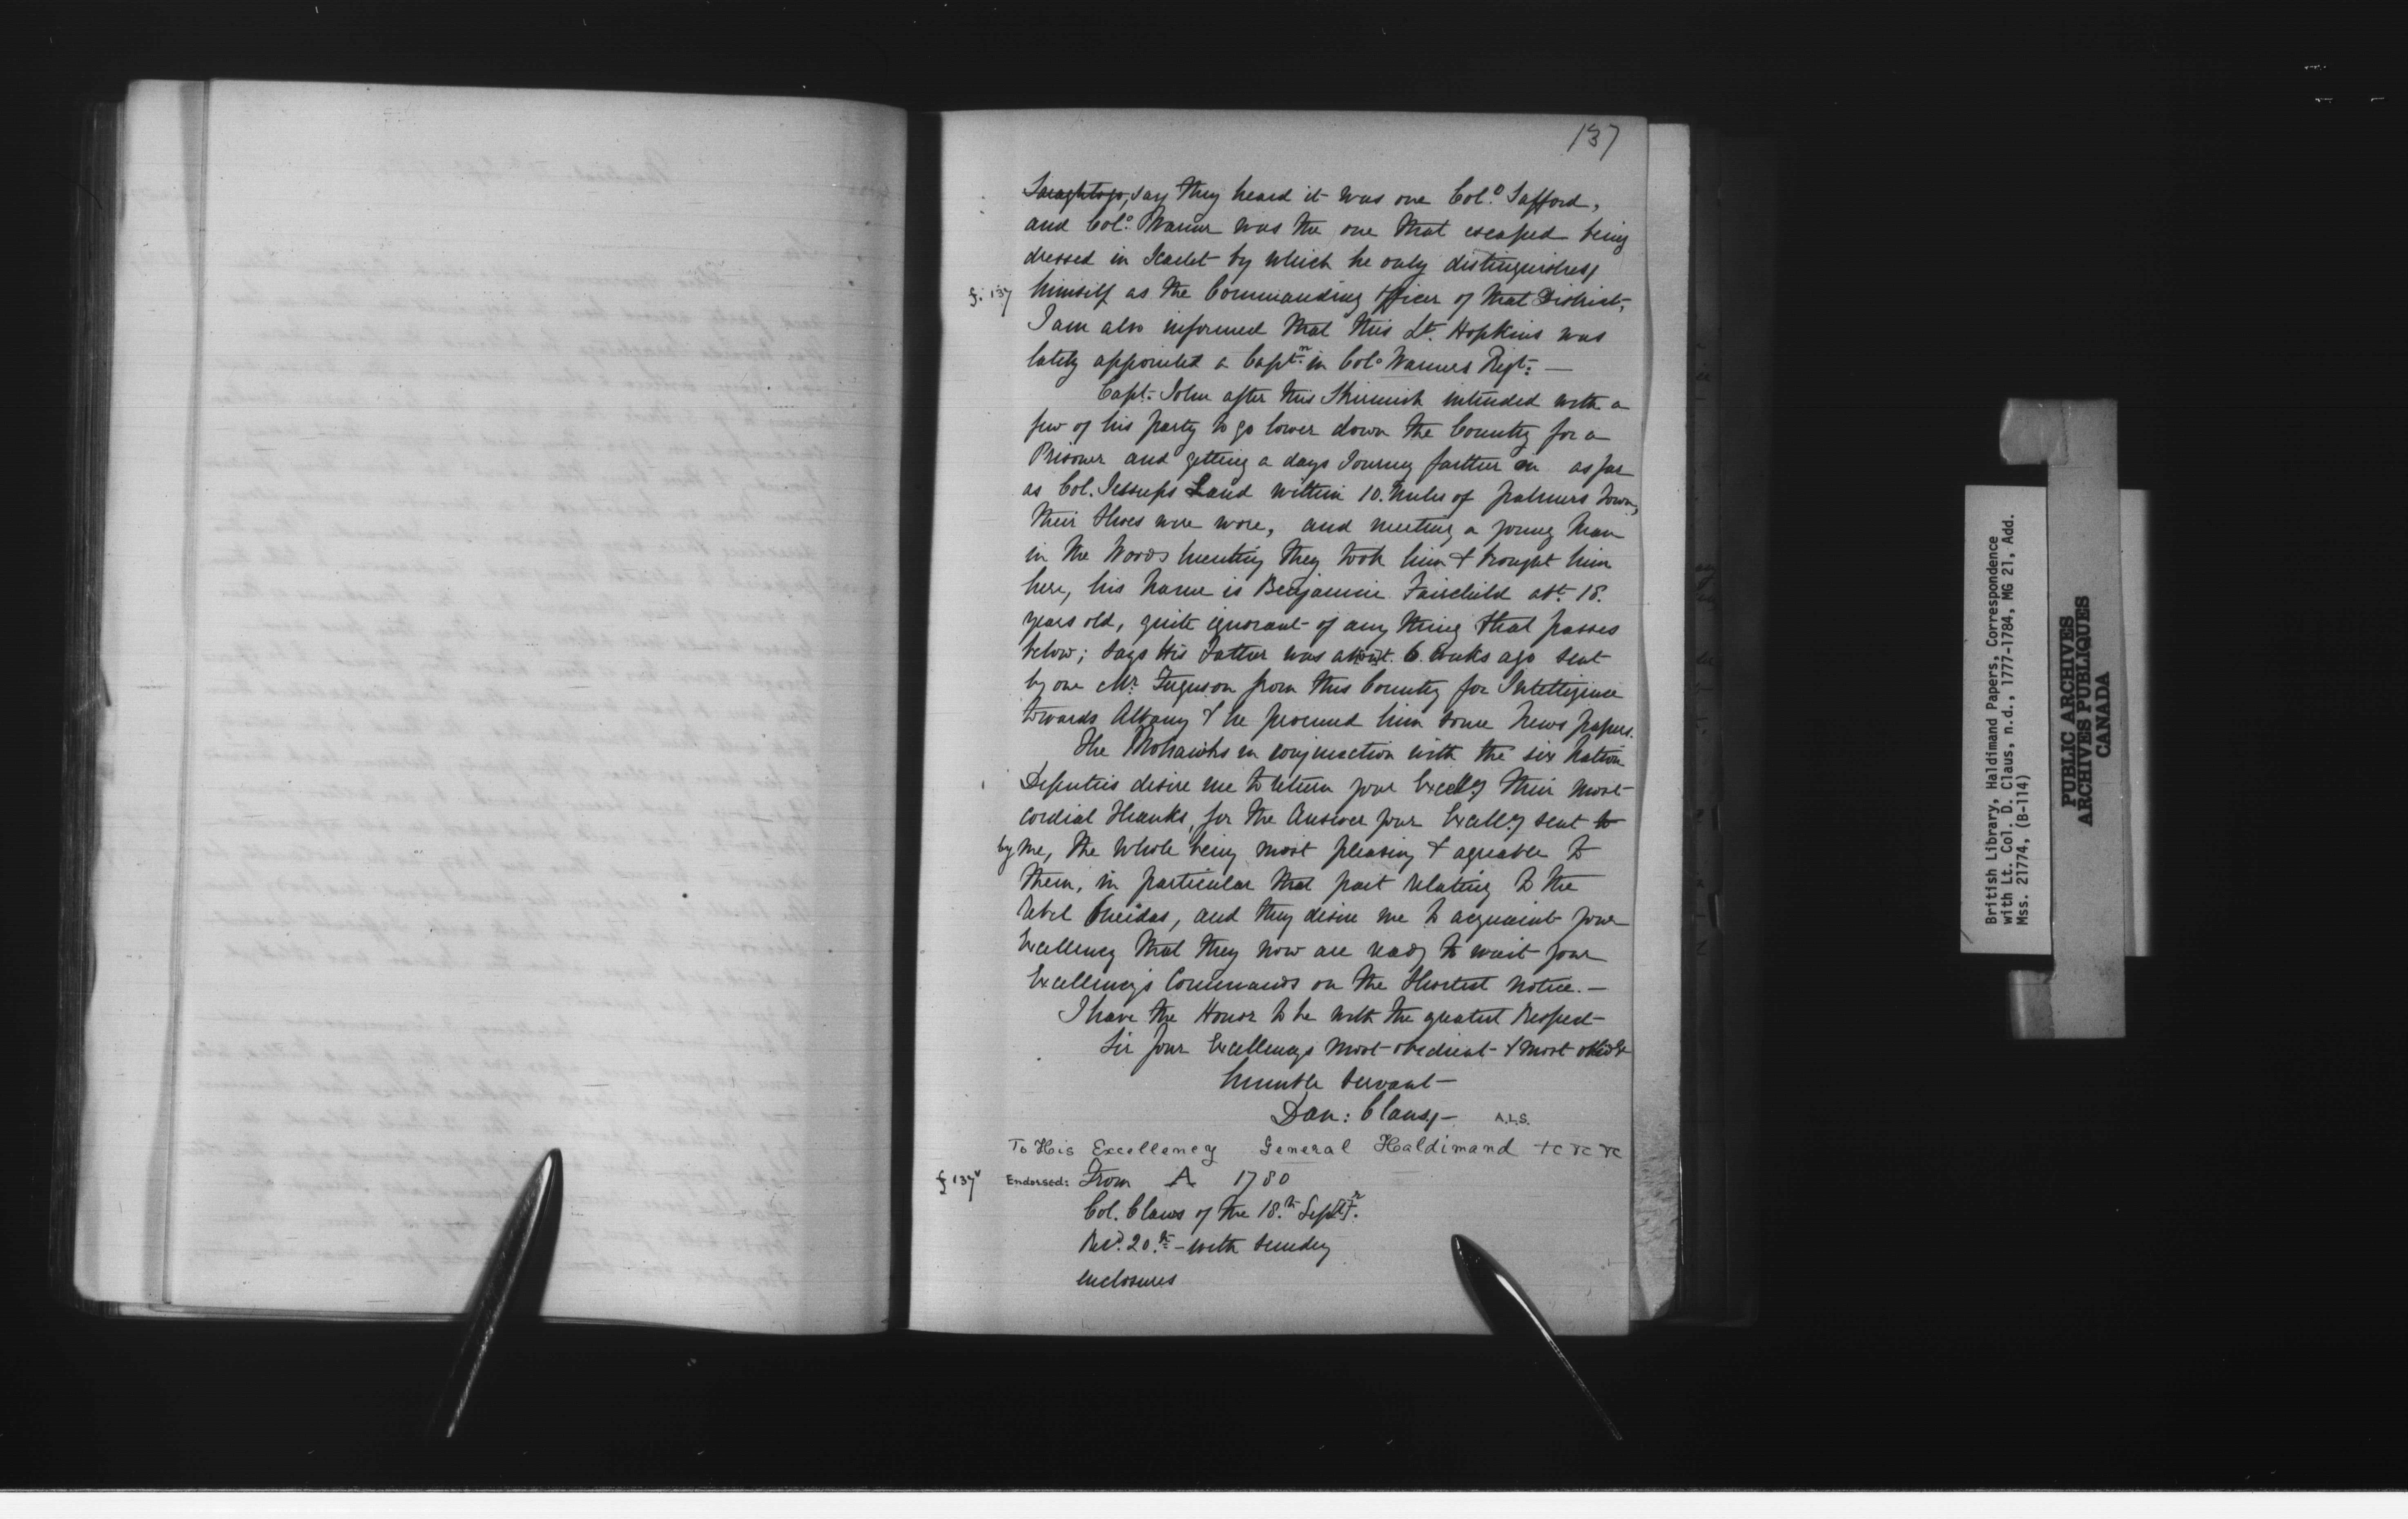 137
Saraghtoga, say they heard it was one Col.º Safford,
and Colº. Warner was the one that escaped being
dressed in Scarlet by which he only distinguishes
f. 137 himself as the Commanding Officer of that District,
I am also informed that this Lt. Hopkins was
lately appointed a Captn. in Colº Warners Regt: —
Capt. John after this Skirmish intended with a
few of his party to go lower down the Country for a
Prisoner and getting a days Journey farther on as far
as Col. Jessups Land within 10. Miles of palmers Town,
their Shoes were wore, and meeting a young Man
in the Woods hunting they took him & brought him
here, his Name is Benjamin Fairchild abt. 18.
years old, quite ignorant of any thing that passes
below; says His Father was about 6. Weeks ago sent
by one Mr. Ferguson from this Country for Intelligence
towards Albany & he procured him some News papers.
The Mohawks in conjunction with the six Nation
Deputies desire me to return your Excelly their most
cordial thanks, for the Answer your Excelly sent to
by me, the whole being most pleasing & agreable to
them, in particular that part relating to the
rebel Oneidas, and they desire me to acquaint your
Excellency that they now are ready to wait your
Excellencys Commands on the Shortest notice. —
I have the Honor to be with the greatest Respect
Sir Your Excellencys most obedient & most
humble Servant
Dan: Claus A.L.S.
To His Excellency General Haldimand &c &c &c
f 137v Endorsed: From A 1780
Col. Claus of the 18.th Septr.
Recd. 20.th — with sundry
enclosures
British Library, Haldimand Papers, Correspondence
with Lt. Col. D. Claus, n.d., 1777-1784, MG 21, Add.
Mss. 21774, (B-114)
PUBLIC ARCHIVES
ARCHIVES PUBLIQUES
CANADA